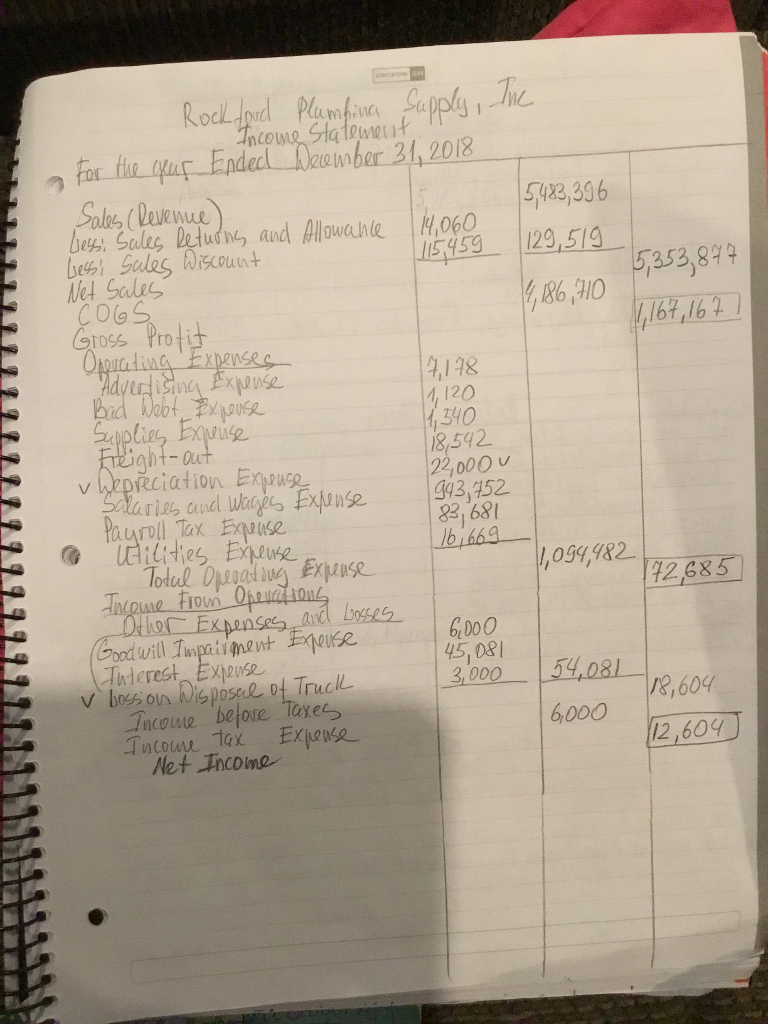 Rockford Plumbing Supply, Inc
Income Statement
For the year Ended December 31, 2018
Sales (Revenue) 5,483,396
Less: Sales Returns and Allowance 14,060
Less: Sales Discount 115,459 129,519
Net Sales 5,353,877
COGS 4,186,710
Gross Profit 1,167,167
Operating Expenses
Advertising Expense 7,178
Bad Debt Expense 1,120
Supplies Expense 1,540
Freight-out 18,542
v Depreciation Expense 22,000 v
Salaries and Wages Expense 943,752
Payroll Tax Expense 83,681
Utilities Expense 16,669
Total Operating Expense 1,094,482
Income From Operations 72,685
Other Expenses and Losses
Goodwill Impairment Expense 6,000
Interest Expense 45,081
v Loss on Disposal of Truck 3,000 54,081
Income before Taxes 18,604
Income tax Expense 6,000
Net Income 12,604